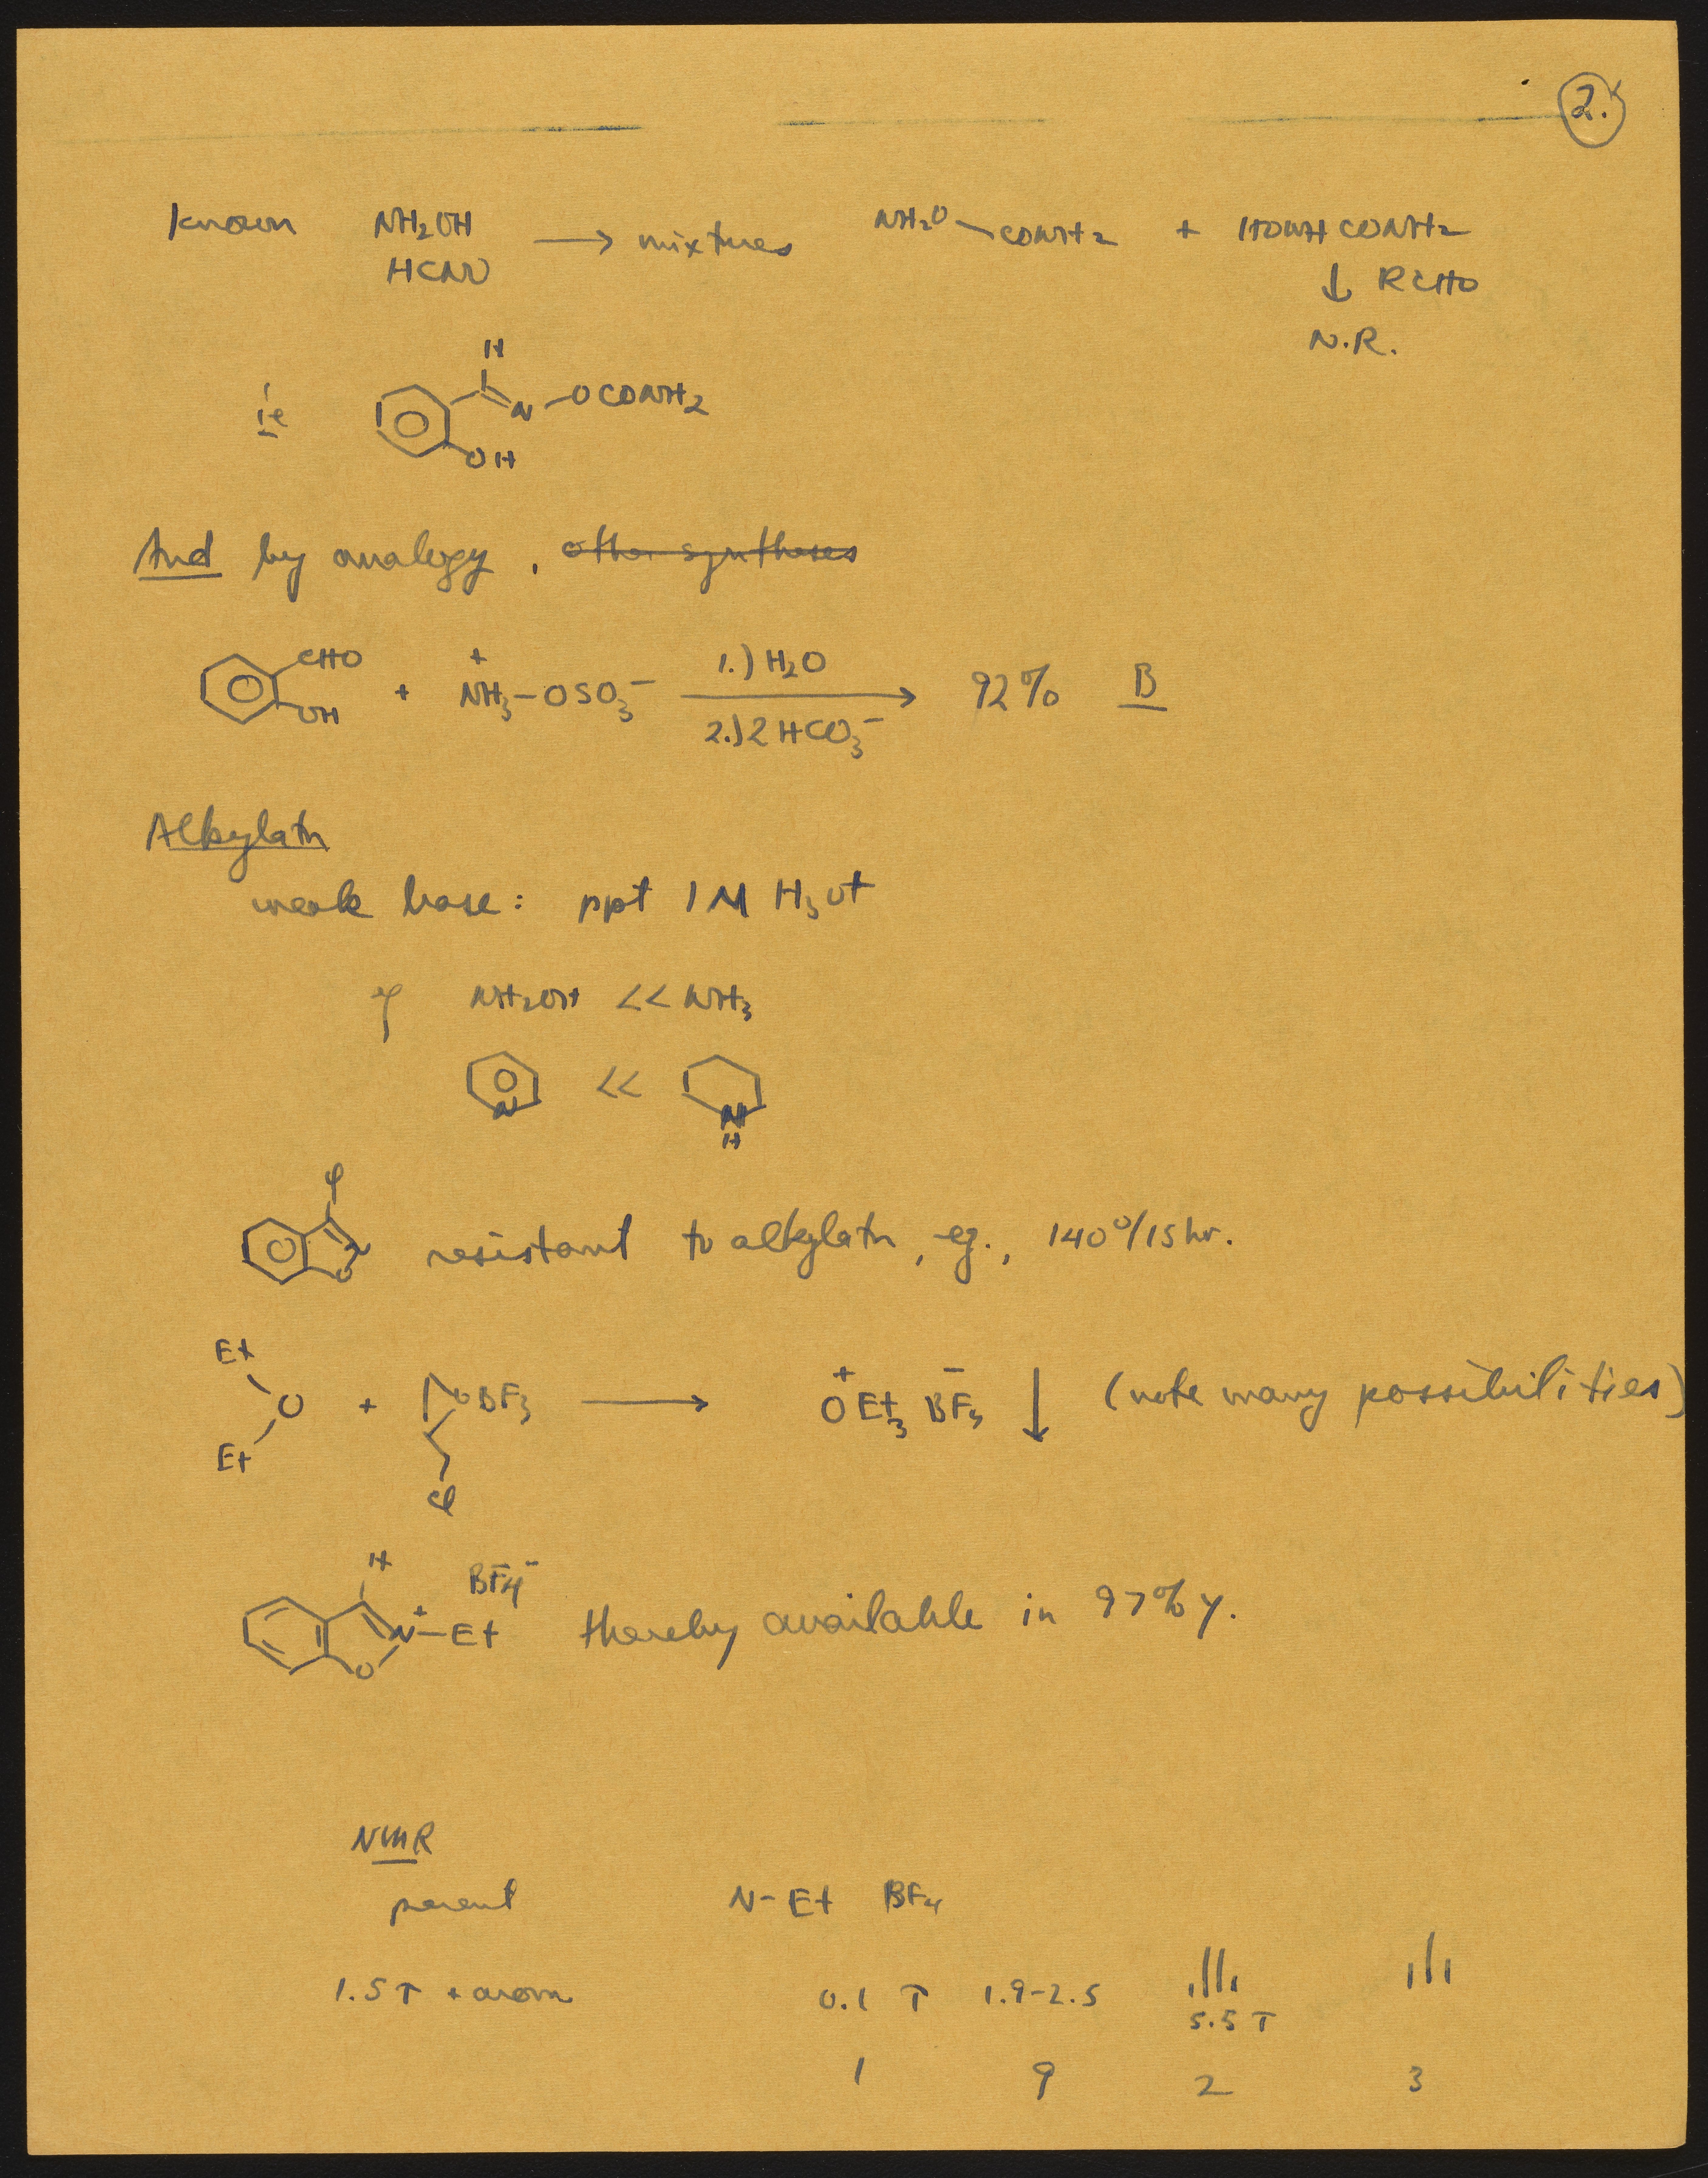 2.
known NH2OH → mixtures NH2O–CONH2 + HONHCONH2
HCNO ↓ RCHO
N.R.
H
ie N –OCONH2
OH
And by analogy, other syntheses
CHO + 1.) H2O
OH + NH3–OSO3− → 92% B
2.) 2 HCO3−
Alkylatn
weak base: ppt 1M H3O+
NH2OH << NH3
N << N
H
φ
N O resistant to alkylatn, eg., 140°/15 hr.
Et + −
O + OBF3 → OEt3 BF4 ↓ (note many possibilities)
Et
Cl
H BF4−
N+–Et thereby available in 97% y.
O
NMR
parent N–Et BF4
1.5 τ + arom 0.1 τ 1.9–2.5
5.5 τ
1 9 2 3